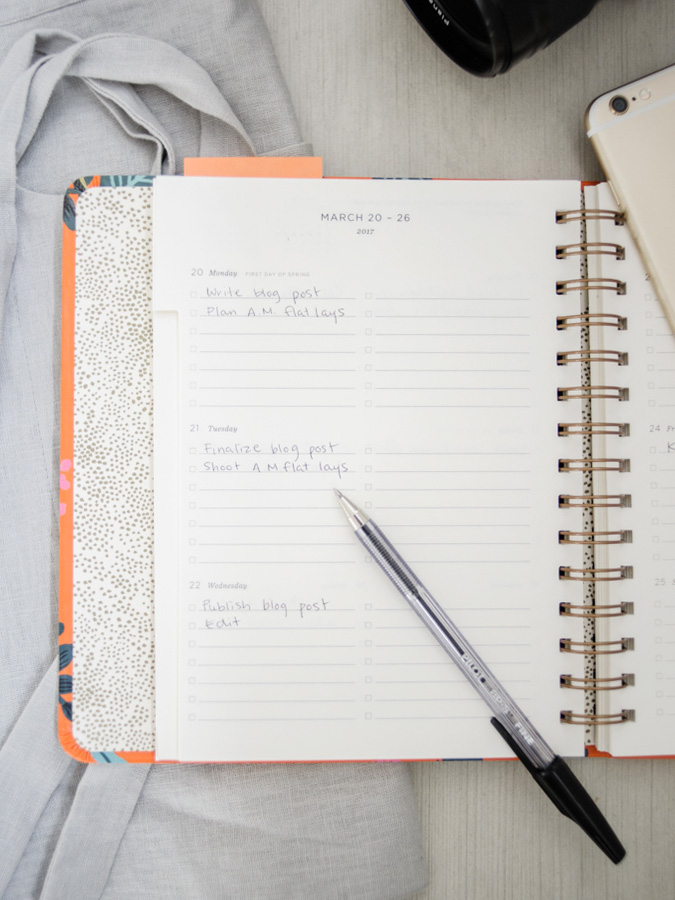 MARCH 20 - 26
2017
20 Monday FIRST DAY OF SPRING
Write blog post
Plan A.M. flat lays
21 Tuesday
Finalize blog post
Shoot A M flat lays
22 Wednesday
Publish blog post
Edit
24
25
PILOT
FINE